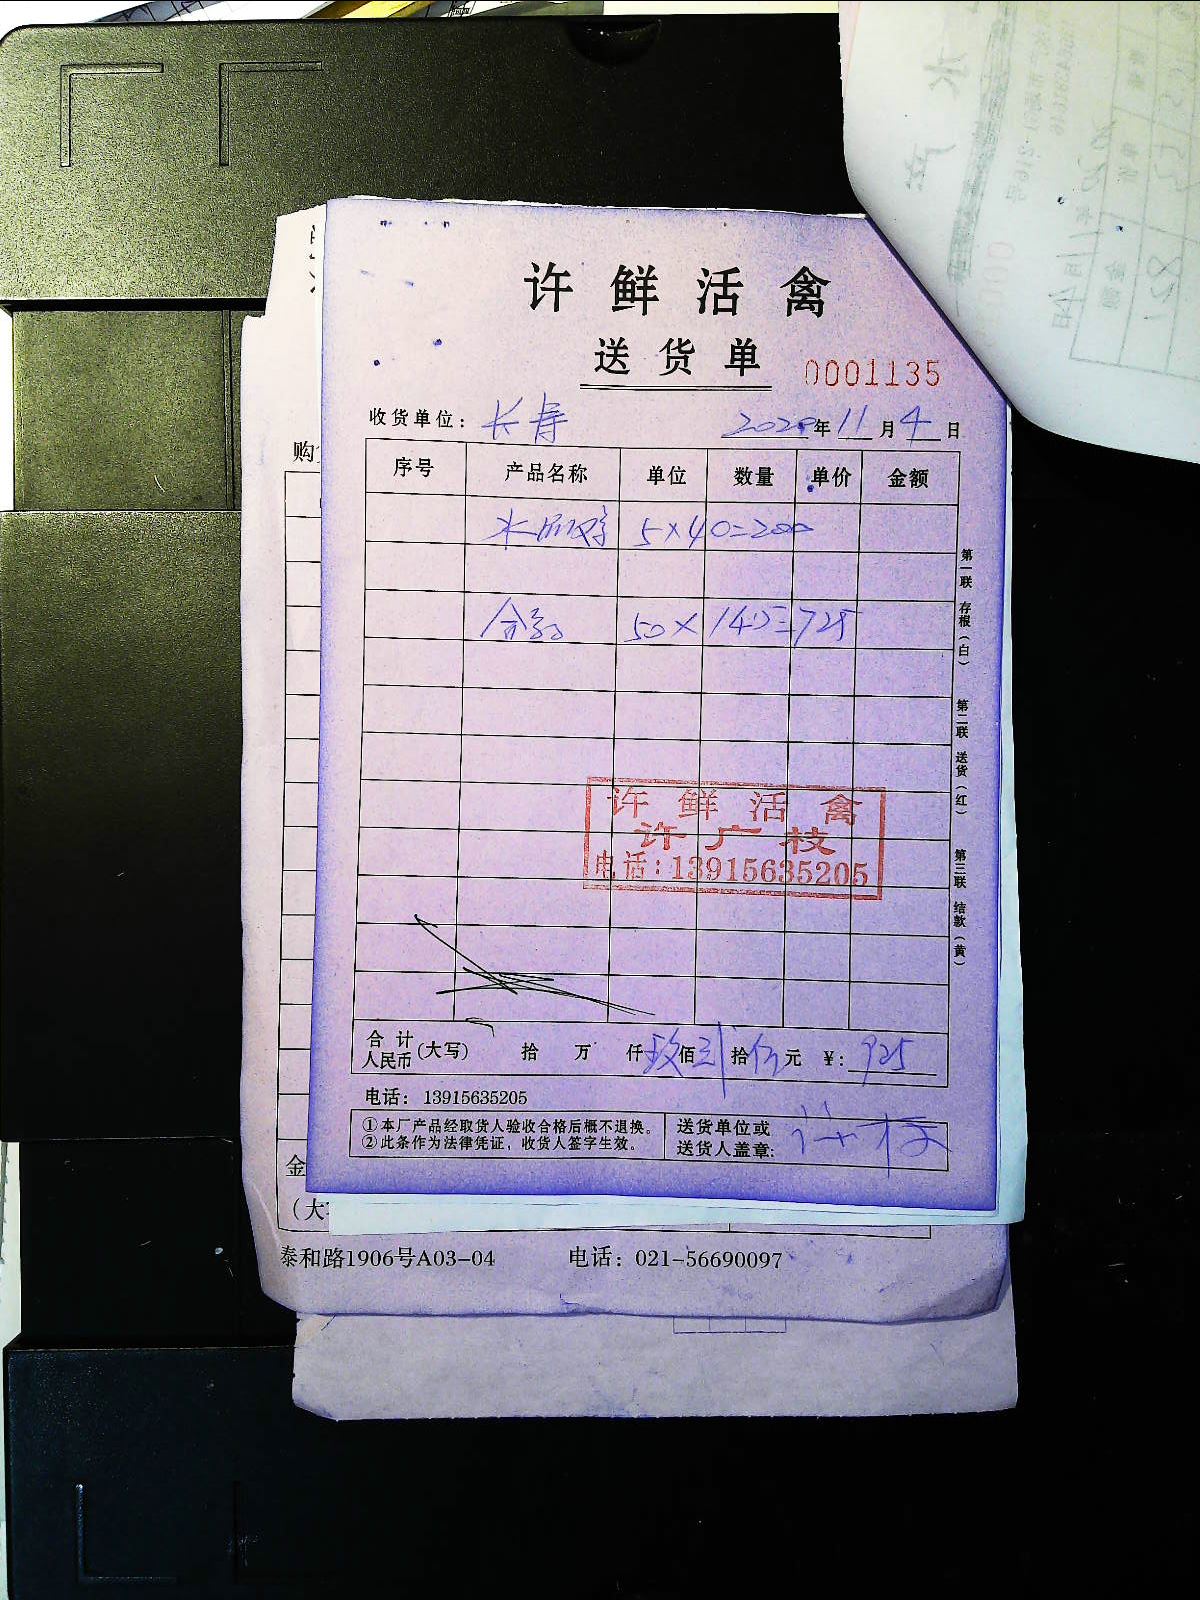 许鲜活禽
送货单
0001135
收货单位：长寿 2020年11月4日
序号 产品名称 单位 数量 单价 金额
5×40=200
50×14.5=725
第一联 存根（白）
第二联 送货（红）
第三联 结款（黄）
许鲜活禽
许广枝
电话：13915635205
合计人民币(大写) 拾 万 仟玖佰 拾伍元 ¥：925
电话：13915635205
①本厂产品经取货人验收合格后概不退换。
②此条作为法律凭证，收货人签字生效。
送货单位或
送货人盖章：许枝
购
金
（大
泰和路1906号A03-04 电话：021-56690097